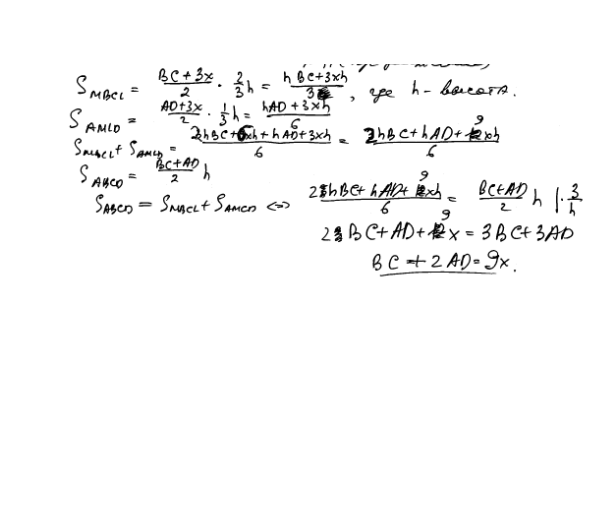 S_MBCL = (BC+3x)/2 · 2/3 h = (hBC+3xh)/3, где h - высота.
S_AMLD = (AD+3x)/2 · 1/3 h = (hAD+3xh)/6
S_MBCL + S_AMLD = (2hBC+6xh+hAD+3xh)/6 = (2hBC+hAD+9xh)/6
S_ABCD = (BC+AD)/2 h
S_ABCD = S_MBCL + S_AMLD <=> (2hBC+hAD+9xh)/6 = (BC+AD)/2 h | · 3/h
2BC+AD+9x = 3BC+3AD
BC+2AD=9x.